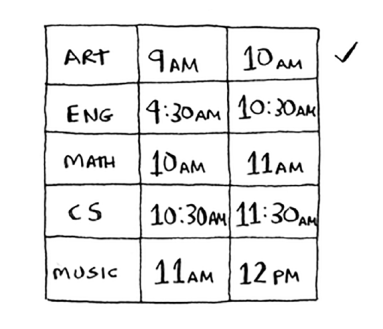 ART 9AM 10AM ✓
ENG 9:30AM 10:30AM
MATH 10AM 11AM
CS 10:30AM 11:30AM
MUSIC 11AM 12PM